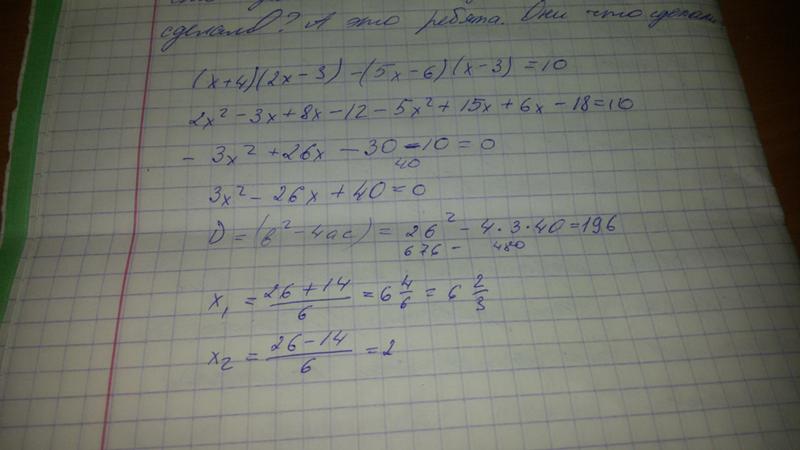 сделали? А это ребята. Они что сделали
(x+4)(2x-3)-(5x-6)(x-3)=10
2x²-3x+8x-12-5x²+15x+6x-18=10
-3x²+26x-30-10=0
40
3x²-26x+40=0
D=(b²-4ac)=26²-4·3·40=196
676- 480
x₁=(26+14)/6=6 4/6=6 2/3
x₂=(26-14)/6=2